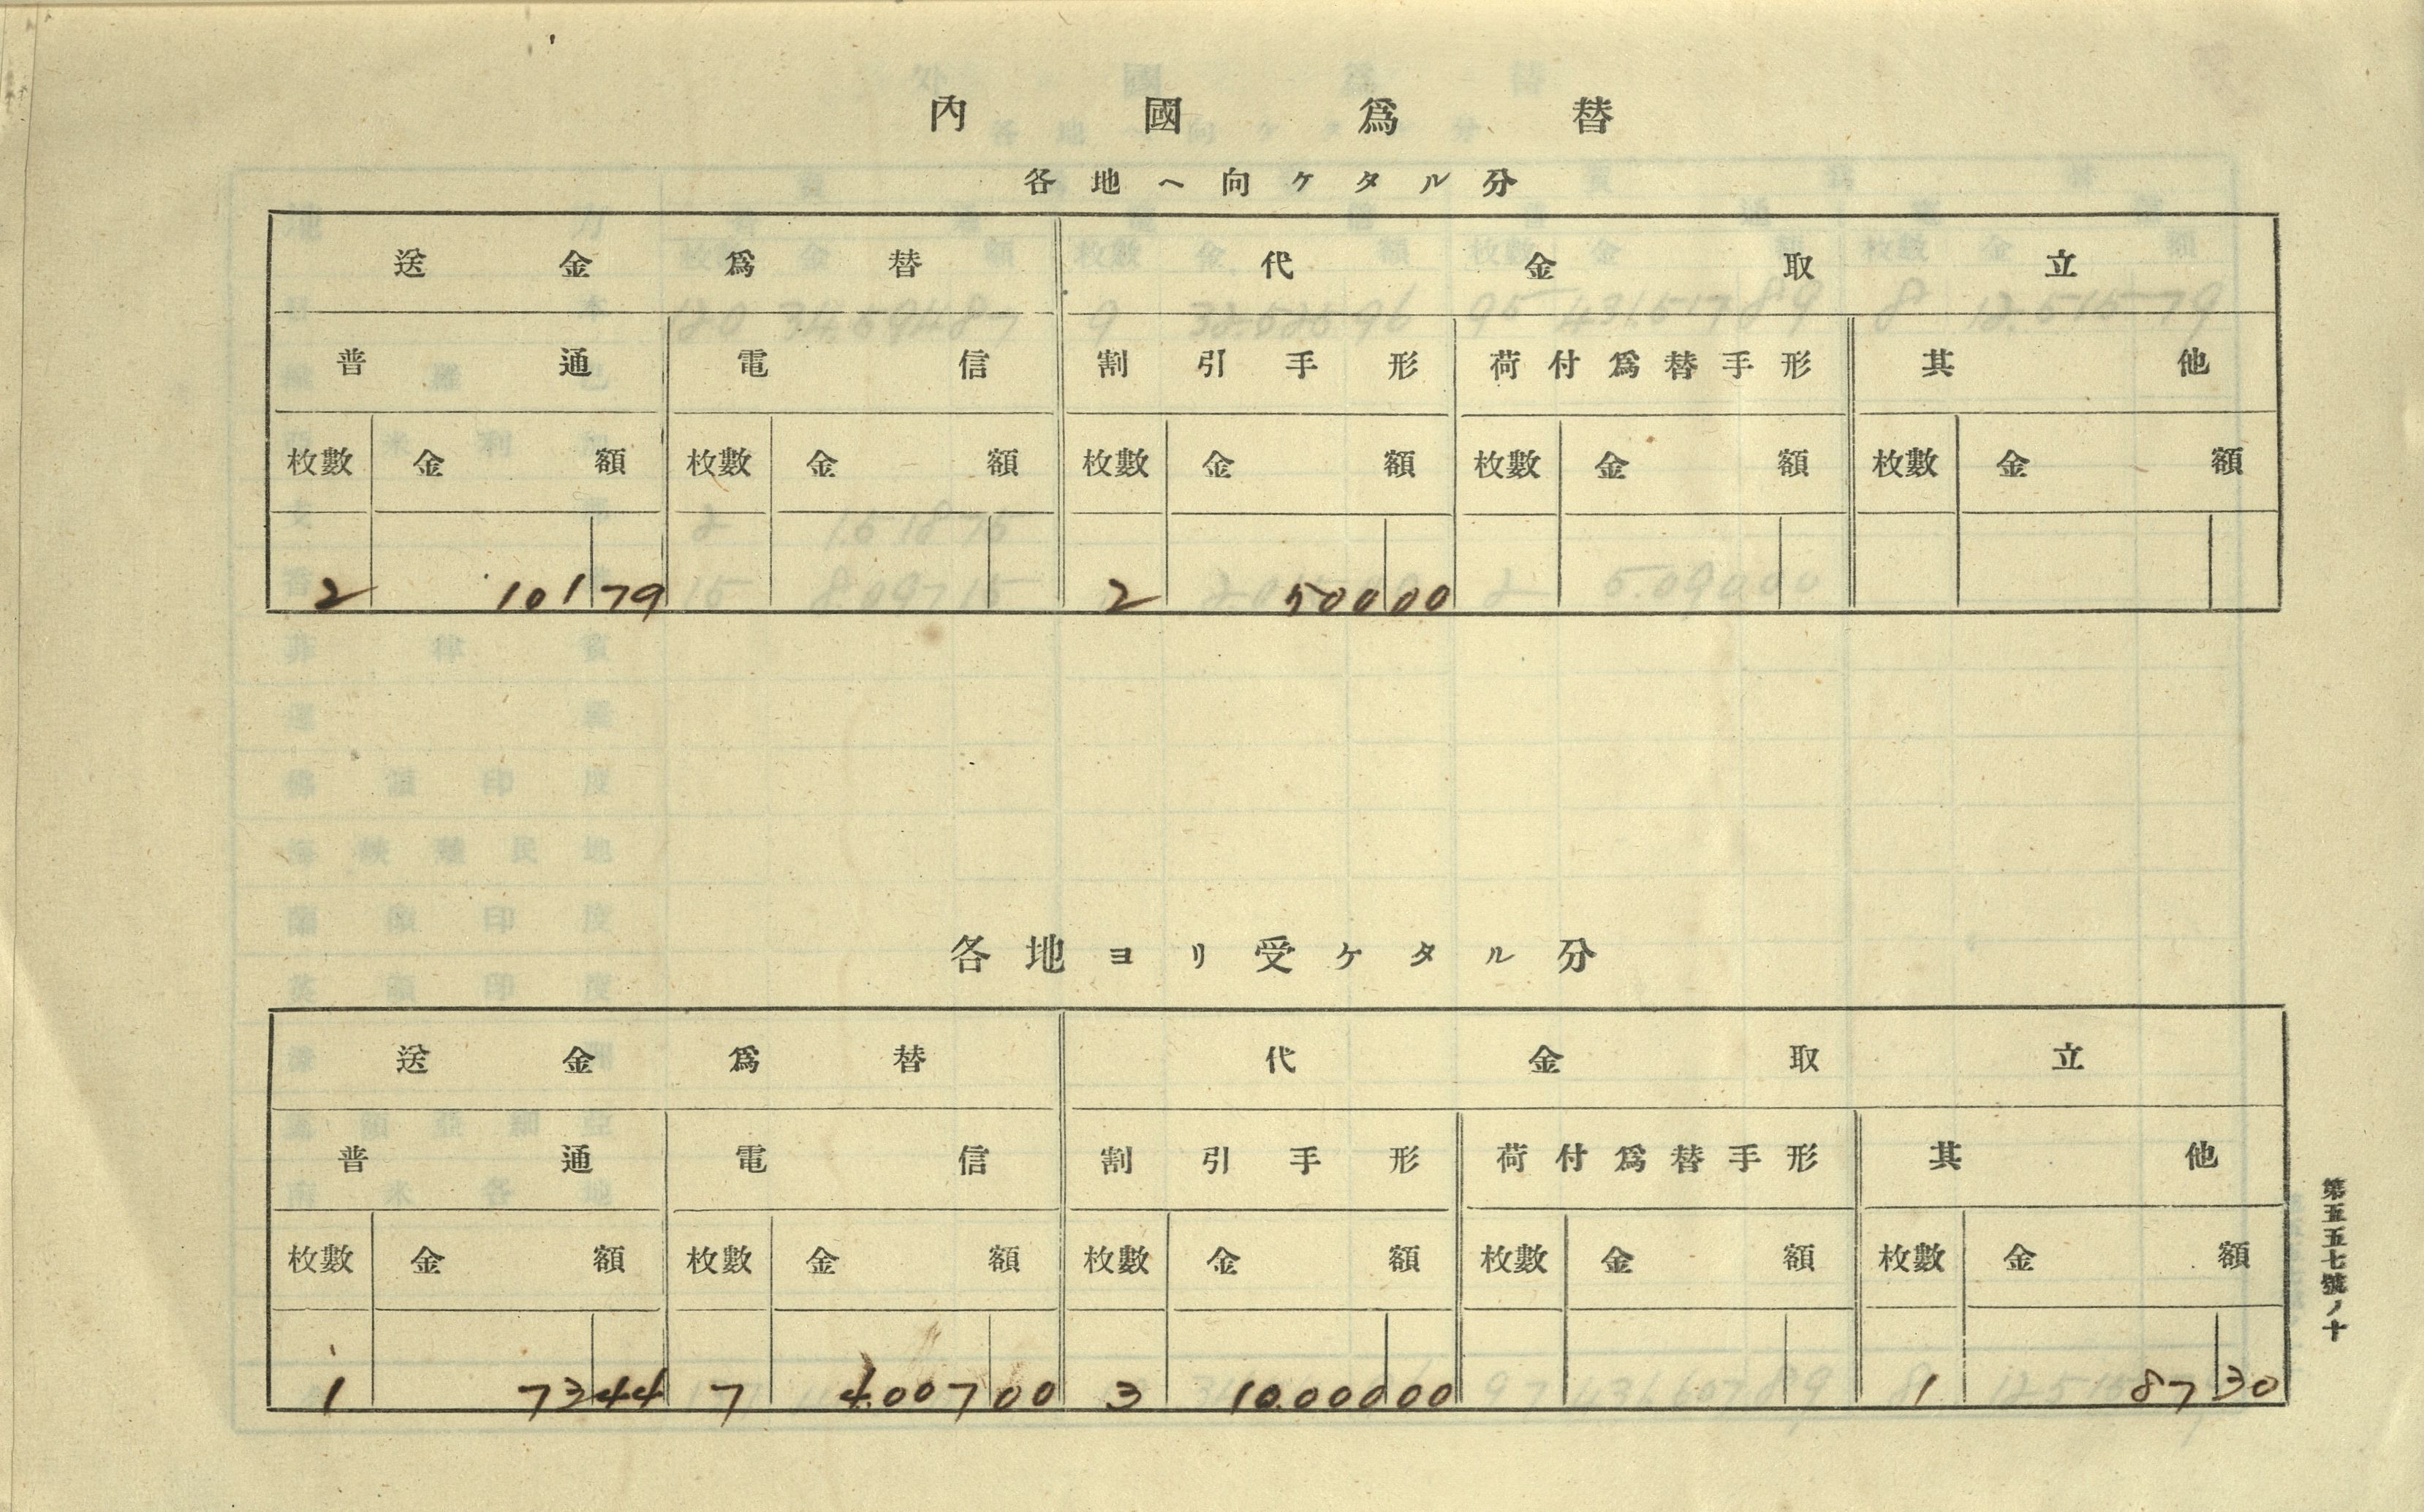 內國爲替
各地ヘ向ケタル分
送金爲替 代金取立
普通 電信 割引手形 荷付爲替手形 其他
枚數 金額 枚數 金額 枚數 金額 枚數 金額 枚數 金額
2 101 79 2 500 00
各地ヨリ受ケタル分
送金爲替 代金取立
普通 電信 割引手形 荷付爲替手形 其他
枚數 金額 枚數 金額 枚數 金額 枚數 金額 枚數 金額
1 73 44 7 4.007 00 3 10.000 00 1 87 30
第五五七號ノ十